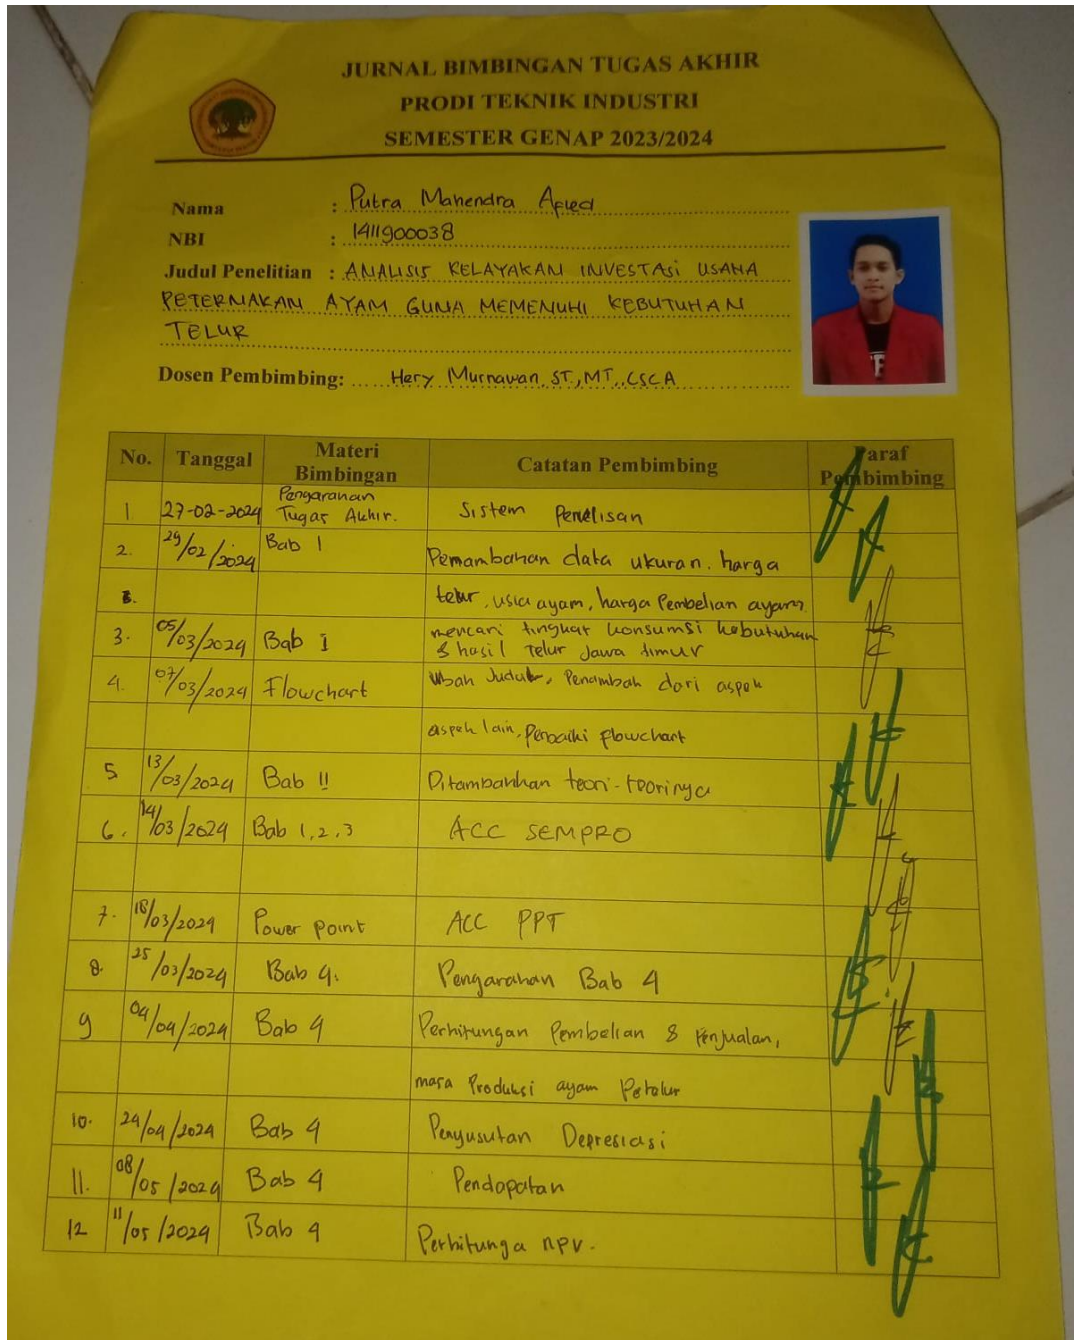 JURNAL BIMBINGAN TUGAS AKHIR
PRODI TEKNIK INDUSTRI
SEMESTER GENAP 2023/2024
Nama : Putra Mahendra
NBI : 1411900038
Judul Penelitian : ANALISIS KELAYAKAN INVESTASI USAHA
PETERNAKAN AYAM GUNA MEMENUHI KEBUTUHAN
TELUR
Dosen Pembimbing: Hery Murnawan, ST., MT., CSCA
No. Tanggal Materi Bimbingan Catatan Pembimbing Paraf Pembimbing
1 27-02-2024 Pengarahan Tugas Akhir. Sistem
2. 29/02/2024 Bab 1 Pemambahan data ukuran. harga
telur, usia ayam, harga Pembelian ayam.
3. 05/03/2024 Bab I mencari tingkat konsumsi kebutuhan
& hasil Telur Jawa timur
4. 07/03/2024 Flowchart Ubah Judul, Penambah dari aspek
aspek lain, Perbaiki flowchart
5 13/03/2024 Bab II Ditambahkan teori-teorinya
6. 14/03/2024 Bab 1,2,3 ACC SEMPRO
7. 18/03/2024 Power point ACC PPT
8. 25/03/2024 Bab 4. Pengarahan Bab 4
9 04/04/2024 Bab 4 Perhitungan Pembelian & Penjualan,
masa Produksi ayam Petelur
10. 24/04/2024 Bab 4 Penyusutan Depresiasi
11. 08/05/2024 Bab 4 Pendapatan
12 11/05/2024 Bab 4 Perhitunga NPV.